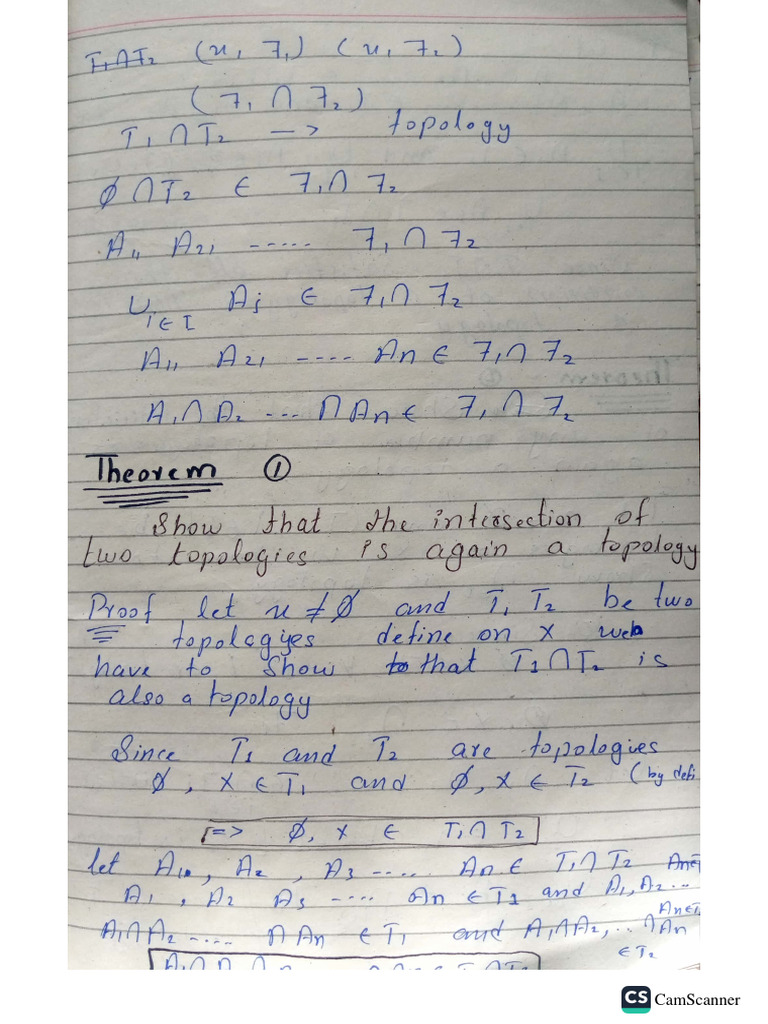 T₁∩T₂ (x, ℱ₁) (x, ℱ₂)
(ℱ₁ ∩ ℱ₂)
T₁ ∩ T₂ —> topology
∅ ∩ T₂ ∈ ℱ₁ ∩ ℱ₂
A₁, A₂, ----- ℱ₁ ∩ ℱ₂
∪ᵢ∈I Aj ∈ ℱ₁ ∩ ℱ₂
A₁, A₂, ---- An ∈ ℱ₁ ∩ ℱ₂
A₁ ∩ A₂ --- ∩ An ∈ ℱ₁ ∩ ℱ₂
Theorem ①
Show that the intersection of
two topologies is again a topology
Proof let x ≠ ∅ and T₁ T₂ be two
topologyes define on X web
have to show that T₁ ∩ T₂ is
also a topology
Since T₁ and T₂ are topologies
∅, X ∈ T₁ and ∅, X ∈ T₂ (by defi
=> ∅, X ∈ T₁ ∩ T₂
let A₁, A₂, A₃ ---- An ∈ T₁ ∩ T₂
A₁, A₂ A₃ ---- An ∈ T₁ and A₁, A₂ ... An ∈ T₂
A₁ ∩ A₂ ---- ∩ An ∈ T₁ and A₁ ∩ A₂, .. ∩ An
∈ T₂
CS CamScanner